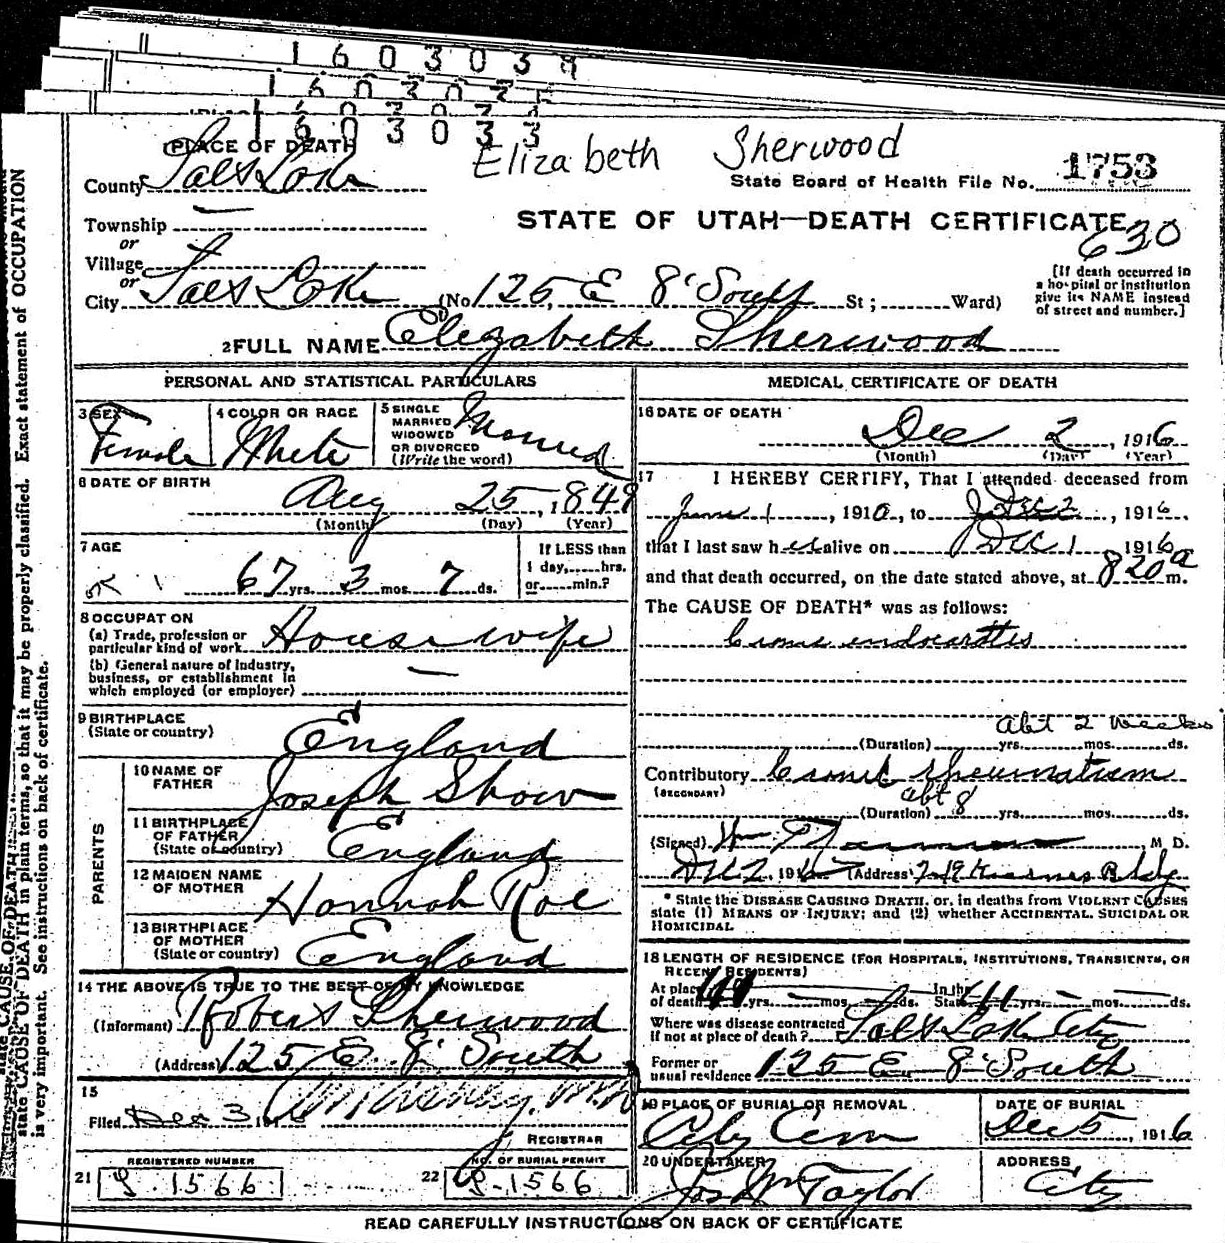 1603039
160303
1603033
Elizabeth Sherwood
PLACE OF DEATH
County Salt Lake
State Board of Health File No. 1753
Township —
STATE OF UTAH—DEATH CERTIFICATE
630
or
Village
or
City Salt Lake (No 125 E 8' South St; Ward)
[If death occurred in
a hospital or institution
give its NAME instead
of street and number.]
2 FULL NAME Elizabeth Sherwood
PERSONAL AND STATISTICAL PARTICULARS
3 SEX Female
4 COLOR OR RACE White
5 SINGLE
MARRIED
WIDOWED
OR DIVORCED
(Write the word) Married
6 DATE OF BIRTH
Aug 25, 1849
(Month) (Day) (Year)
7 AGE
67 yrs. 3 mos. 7 ds.
If LESS than
1 day, hrs.
or min.?
8 OCCUPATION
(a) Trade, profession or
particular kind of work Housewife
(b) General nature of industry,
business, or establishment in
which employed (or employer) —
9 BIRTHPLACE
(State or country) England
PARENTS
10 NAME OF
FATHER Joseph Shaw
11 BIRTHPLACE
OF FATHER
(State or country) England
12 MAIDEN NAME
OF MOTHER Hannah Roe
13 BIRTHPLACE
OF MOTHER
(State or country) England
14 THE ABOVE IS TRUE TO THE BEST OF MY KNOWLEDGE
(Informant) Robert Sherwood
(Address) 125 E 8' South
15
Filed Dec 3 191
REGISTRAR
REGISTERED NUMBER
21 1566
NO. OF BURIAL PERMIT
22 1566
MEDICAL CERTIFICATE OF DEATH
16 DATE OF DEATH
Dec 2, 1916
(Month) (Day) (Year)
17 I HEREBY CERTIFY, That I attended deceased from
June 1, 1910, to Dec 2, 1916,
that I last saw her alive on Dec 1 1916
and that death occurred, on the date stated above, at 8 20 a m.
The CAUSE OF DEATH* was as follows:
endocarditis
abt 2 weeks
(Duration) yrs. mos. ds.
Contributory rheumatism
(SECONDARY)
abt 8
(Duration) yrs. mos. ds.
(Signed) Wm , M D.
Dec 2, 1916 (Address) 719 Kearns Bldg
* State the DISEASE CAUSING DEATH, or, in deaths from VIOLENT CAUSES
state (1) MEANS OF INJURY; and (2) whether ACCIDENTAL, SUICIDAL OR
HOMICIDAL
18 LENGTH OF RESIDENCE (FOR HOSPITALS, INSTITUTIONS, TRANSIENTS, OR
RECENT RESIDENTS)
At place
of death yrs. — mos. — ds. In the State yrs. — mos. — ds.
Where was disease contracted
if not at place of death? Salt Lake City
Former or
usual residence 125 E 8' South
19 PLACE OF BURIAL OR REMOVAL
City Cem
DATE OF BURIAL
Dec 5, 1916
20 UNDERTAKER
Jos Wm Taylor
ADDRESS
City
READ CAREFULLY INSTRUCTIONS ON BACK OF CERTIFICATE
state CAUSE OF DEATH in plain terms, so that it may be properly classified. Exact statement of OCCUPATION
is very important. See instructions on back of certificate.